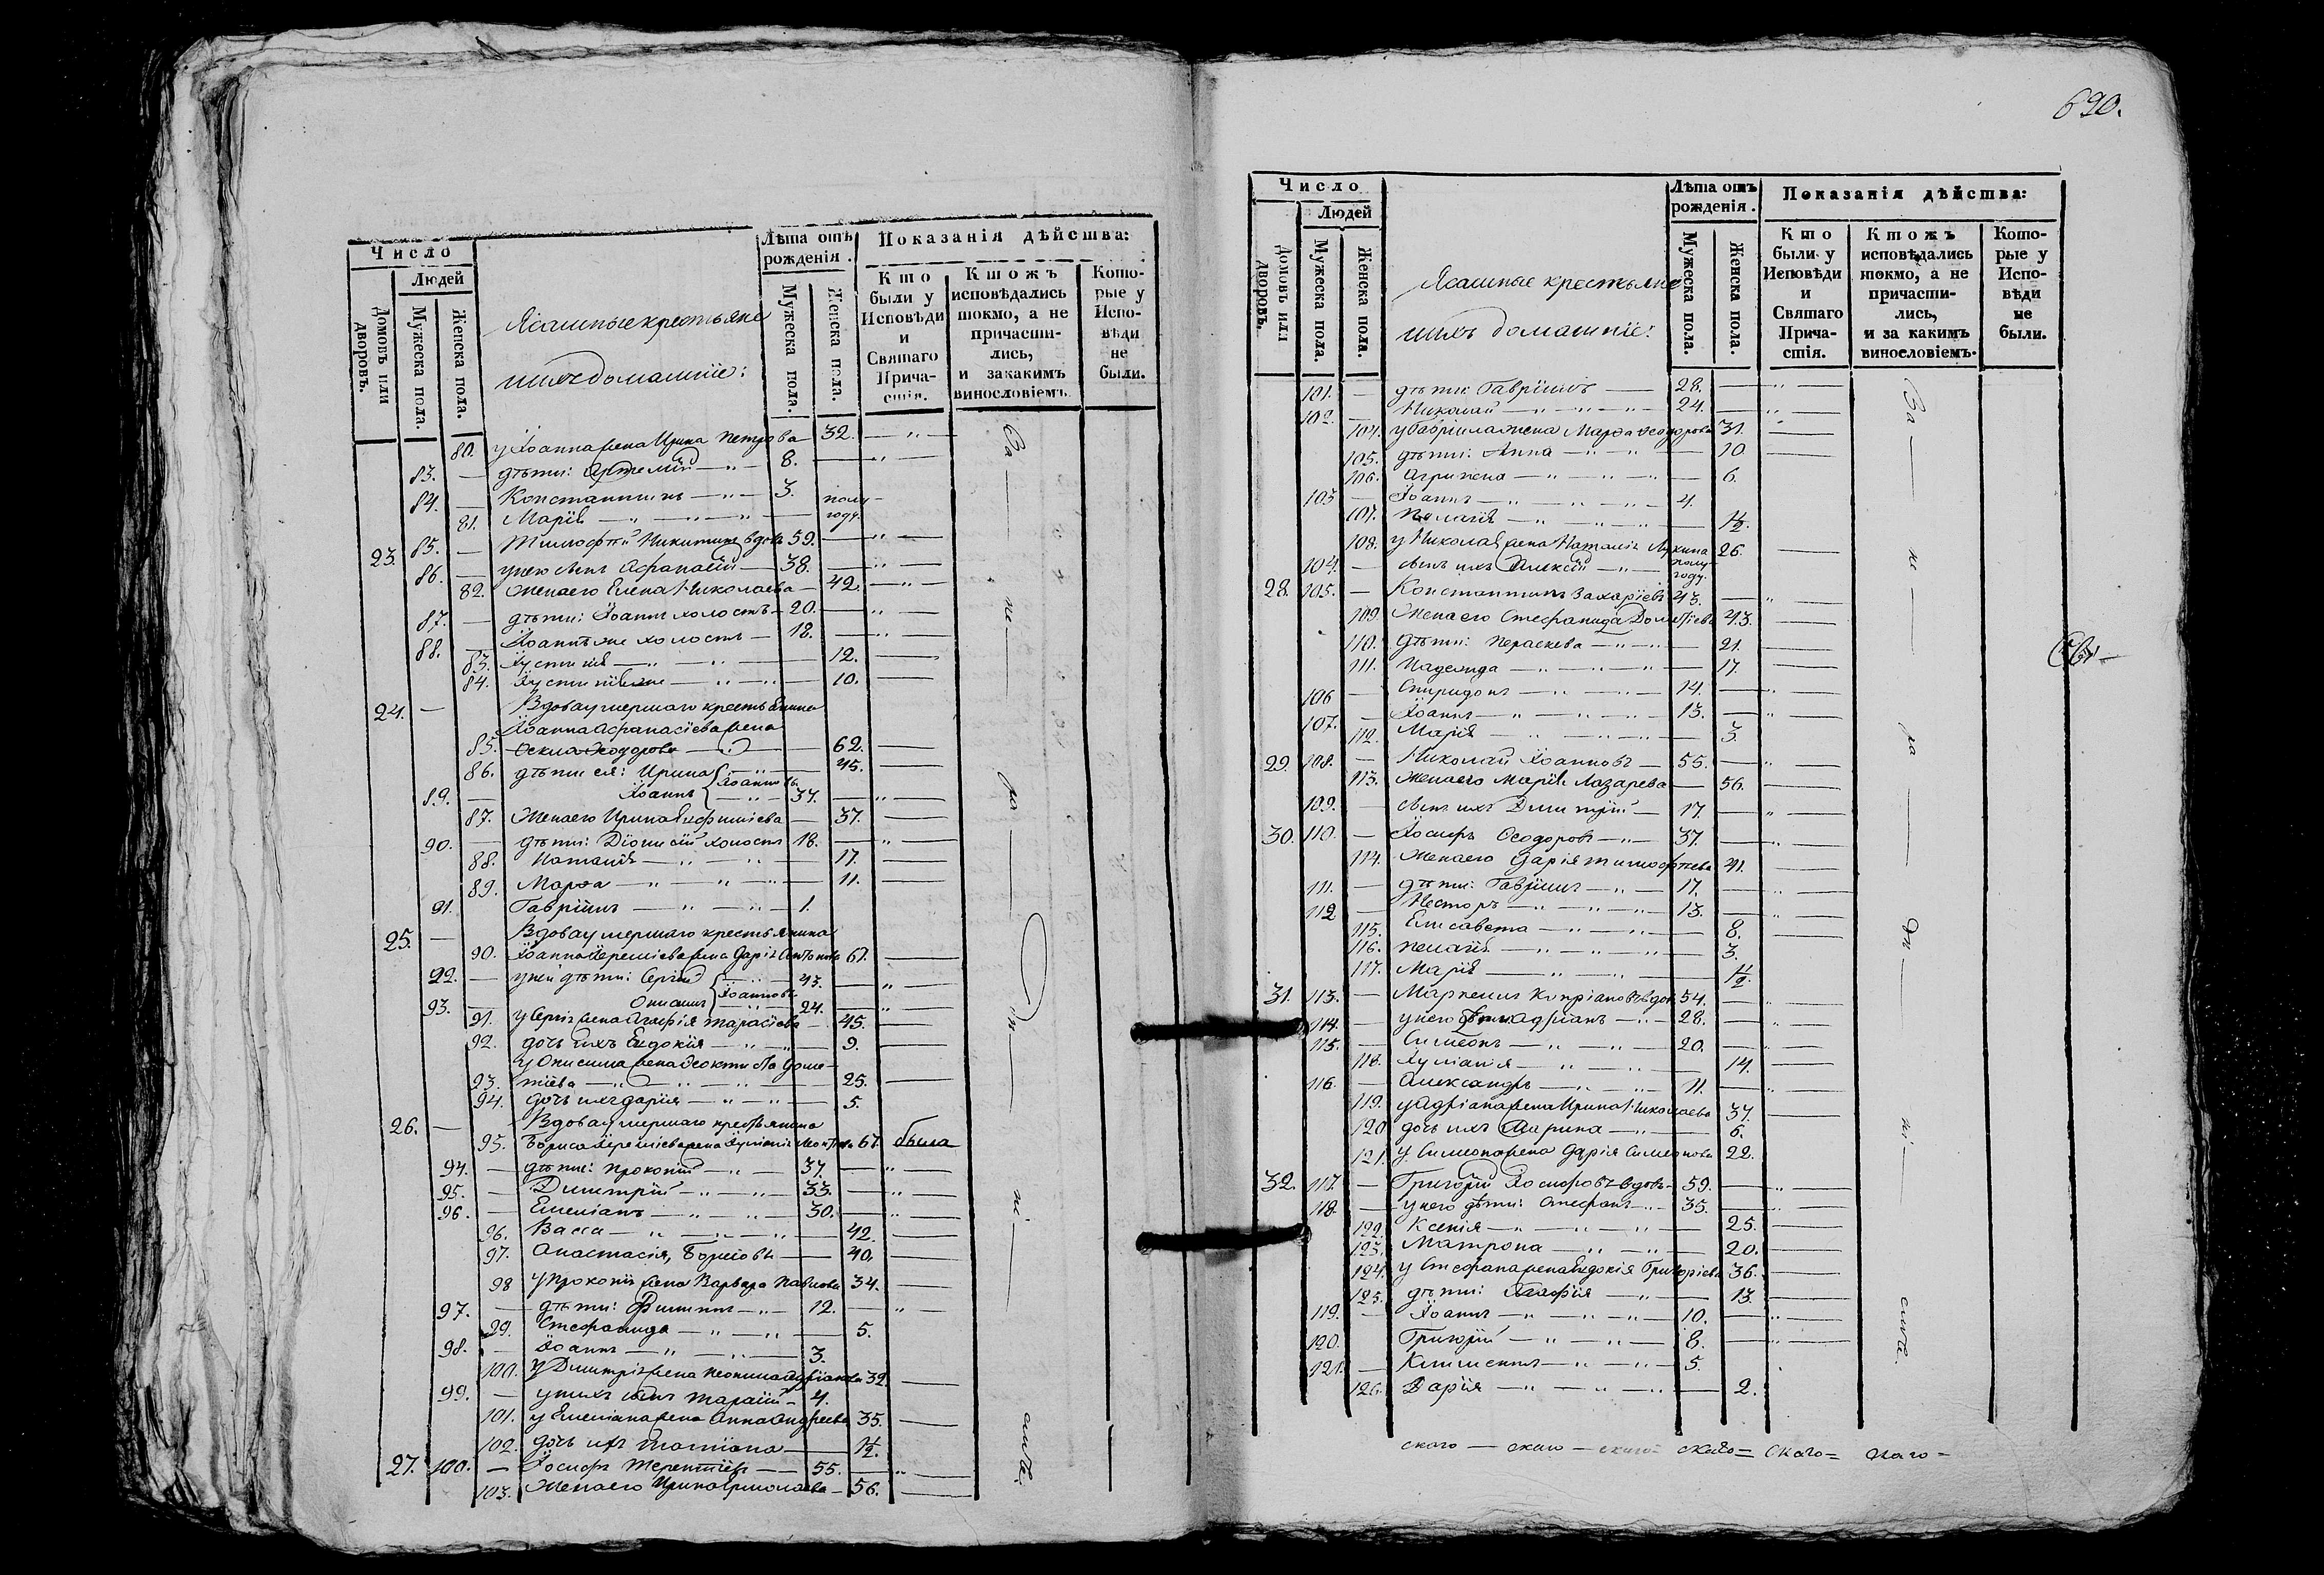 Число
Людей
Домовъ или дворовъ.
Мужеска пола.
Женска пола.
Ясашные крестьяне
и ихъ домашніе:
Лѣта отъ рожденія.
Мужеска пола.
Женска пола.
Показанія дѣйства:
Кто были у Исповѣди и Святаго Причастія.
Ктожъ исповѣдались токмо, а не причастились, и за какимъ винословіемъ.
Которые у Исповѣди не были.
80. у Іоанна жена Ирина Петрова 32.
83. — дѣти: Артемій — 8.
84. — Константинъ — 3.
81. Марія — полугоду.
23. 85. — Тимофѣй Никитинъ вдовъ 59.
86. — у него сынъ Афанасій — 38.
82. Жена его Елена Николаева — 42.
87. — дѣти: Іоаннъ холостъ — 20.
88. — Іоаннъ же холостъ — 18.
83. Іустинія — 12.
84. Іустинія же — 10.
24. — Вдова умершаго крестьянина
Іоанна Афанасіева жена
85. Фекла Феодорова — 62.
86. дѣти ея: Ирина — Іоанновы 45.
89. — Іоаннъ — 37.
87. Жена его Ирина — 37.
90. — дѣти: Діонисій холостъ 18.
88. Наталія — 17.
89. Марѳа — 11.
91. Гавріилъ — 1.
25. — Вдова умершаго крестьянина
90. Іоанна Іереміева жена Дарія Антонова 67.
92. — у ней дѣти: Сергій — Іоанновы 43.
93. — Онисимъ — 24.
91. у Сергія жена Агафія Тарасіева — 45.
92. дочь ихъ Евдокія — 9.
у Онисима жена Феоктиста Доме-
93. тіева — 25.
94. дочь ихъ Дарія — 5.
26. — Вдова умершаго крестьянина
95. Бориса Іереміева жена Іуліанія 67 была
94. — дѣти: Прокопій — 37.
95. — Димитрій — 33.
96. — Емеліанъ — 30.
96. Васса — 42.
97. Анастасія, Борисовы — 40.
98 у Прокопія жена Варвара Павлова 34.
97. — дѣти: Филиппъ — 12.
99. Стефанида — 5.
98. — Іоаннъ — 3.
100. У Димитрія жена Неонила Адріанова 32.
99. — у нихъ сынъ Тарасій — 4.
101. у Емеліана жена Анна Андреева 35.
102. дочь ихъ Татіана — 1½.
27. 100. — Іосифъ Терентіевъ — 55.
103. Жена его Ирина Ермолаева — 56.
За — не — ра — дѣ — ні — емъ.
690.
Число
Людей
Домовъ или дворовъ.
Мужеска пола.
Женска пола.
Ясашные крестьяне
и ихъ домашніе:
Лѣта отъ рожденія.
Мужеска пола.
Женска пола.
Показанія дѣйства:
Кто были у Исповѣди и Святаго Причастія.
Ктожъ исповѣдались токмо, а не причастились, и за какимъ винословіемъ.
Которые у Исповѣди не были.
101. — дѣти: Гавріилъ — 28.
102. — Николай — 24.
104. у Гавріила жена Марѳа Феодорова 31.
105. дѣти: Анна — 10
106. Агрипена — 6.
103 — Іоаннъ — 4.
107. Пелагія — 1½.
108. у Николая жена Наталія Лукина 26.
104. — сынъ ихъ Алексій — полугоду.
28. 105. — Константинъ Захаріевъ 43.
109. Жена его Стефанида Дометіева 43.
110. дѣти: Параскева — 21.
111. Надежда — 17.
106 — Спиридонъ — 14.
107. — Іоаннъ — 13.
112. Марія — 3.
29. 108. — Николай Іоанновъ — 55.
113. Жена его Марія Лазарева — 56.
109. — сынъ ихъ Димитрій — 17.
30. 110. — Іосифъ Феодоровъ — 37.
114. Жена его Дарія Тимофѣева 41.
111. — дѣти: Гавріилъ — 17.
112 — Несторъ — 13.
115. Елисавета — 8.
116. Пелагія — 3.
117. Марія — 1½.
31. 113. — Маркеллъ Кипріановъ вдовъ 54.
114. — у него дѣти: Адріанъ — 28.
115. — Симеонъ — 20.
118. Іуліанія — 14.
116. — Александръ — 11.
119. у Адріана жена Ирина Николаева 37.
120 дочь ихъ Марина — 6.
121. у Симеона жена Дарія Симеонова 22.
32. 117. — Григорій Іосифовъ вдовъ — 59.
118. — у него дѣти: Стефанъ — 35.
122. Ксенія — 25.
123. Матрона — 20.
124. у Стефана жена Евдокія Григоріева 36.
125. дѣти: Агафія — 13.
119. — Іоаннъ — 10.
120. Григорій — 8.
121. — Климентъ — 5.
126. Дарія — 2.
За — не — ра — дѣ — ні — емъ.
скаго — скаго — скаго — скаго = скаго = скаго =